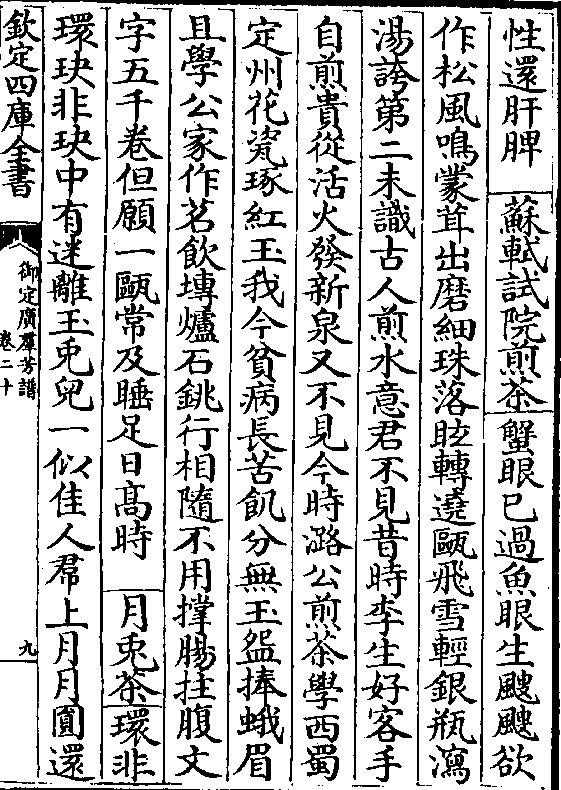 性還肝脾　蘇軾試院煎茶　蟹眼已過魚眼生颼颼欲
作松風鳴蒙茸出磨細珠落眩轉遶甌飛雪輕銀瓶瀉
湯誇第二未識古人煎水意君不見昔時李生好客手
自煎貴從活火發新泉又不見今時潞公煎茶學西蜀
定州花瓷琢紅玉我今貧病長苦飢分無玉盌捧蛾眉
且學公家作茗飲塼爐石銚行相隨不用撑腸拄腹文
字五千卷但願一甌常及睡足日髙時　月兎茶　環非
環玦非玦中有迷離玉兎兒一似佳人帬上月月圓還
欽定四庫全書
御定廣羣芳譜
卷二十
九